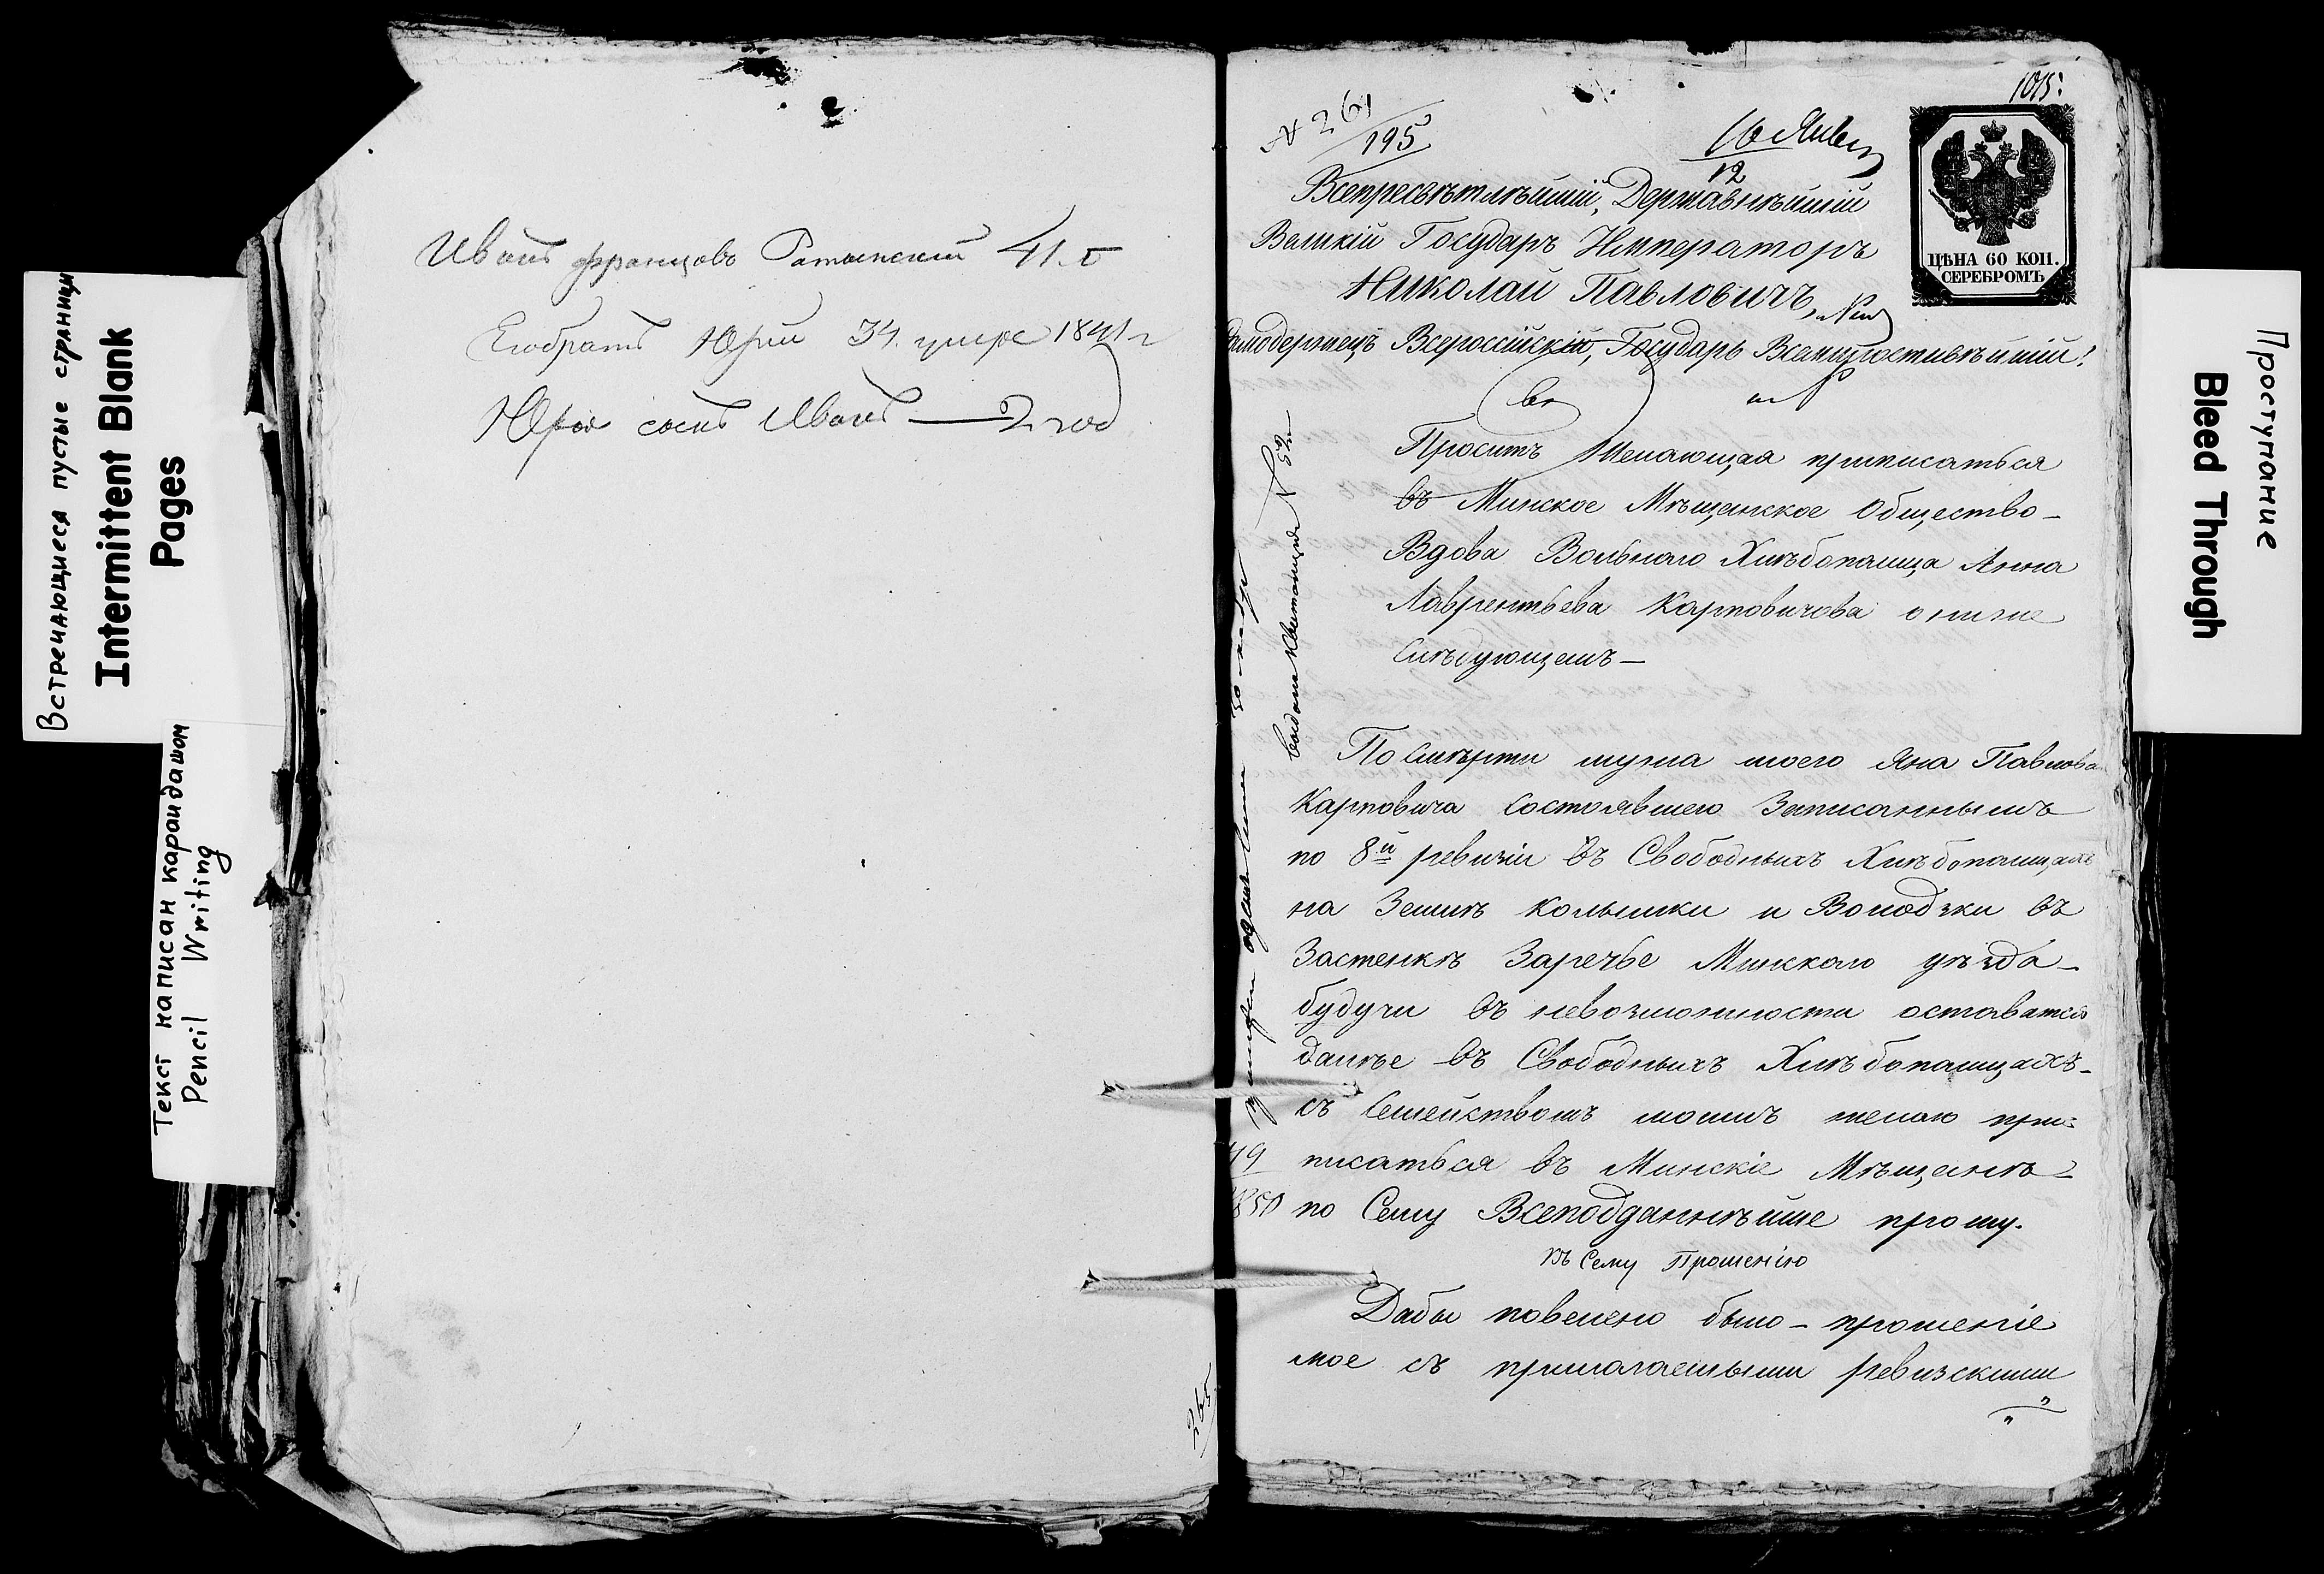 Встречающиеся пустые страницы
Intermittent Blank
Pages
Текст написан карандашом
Pencil Writing
Иванъ Францовъ 41.
Егобратъ Юрій 34. умре 1841 г
Юрія сынъ Иванъ — 2 год
265
1015
№ 261
195
16 Янв
12
ЦѢНА 60 КОП.
СЕРЕБРОМЪ
Всепресвѣтлѣйшій, Державнѣйшій
Великій Государь Императоръ
Николай Павловичъ,
Самодержецъ Всероссійскій, Государь Всемилостивѣйшій!
Проситъ Желающая приписаться
въ Минское Мѣщанское Общество –
Вдова Вольнаго Хлѣбопашца Анна
Лаврентьева Карповичова о ниже
слѣдующемъ –
выдана квитанція №
По смѣрти мужа моего Яна Павлова
Карповича состоявшего Записаннымъ
по 8й ревизіи въ Свободныхъ Хлѣбопашцахъ
на Землѣ Колышки и Володзки въ
Застенкѣ Заречье Минскаго уѣзда –
будучи въ невозможности оставатся
далѣе въ Свободныхъ Хлѣбопашцахъ –
съ Семействомъ моимъ желаю при:
писаться въ Минскіе Мѣщанѣ –
19
1850
по Сему Всеподданнѣйше прошу.
къ Сему Прошенію
Дабы повелено было – прошеніе
мое съ прилагаемыми ревизскими
Проступание
Bleed Through